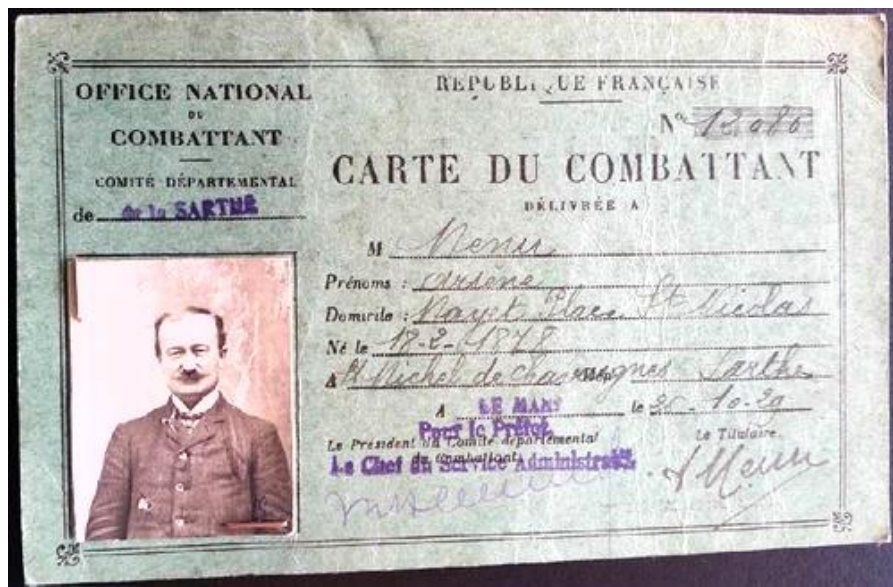 OFFICE NATIONAL
DU
COMBATTANT
COMITÉ DÉPARTEMENTAL
de de la SARTHE
REPUBLIQUE FRANÇAISE
No 12.080
CARTE DU COMBATTANT
DÉLIVRÉE A
M Menu
Prénoms : Arsène
Domicile : Mayet Place St Nicolas
Né le 18-2-1878
à St Michel de Chavaignes Sarthe
A LE MANS le 25-10-29
Pour le Préfet,
Le Président du Comité départemental
du Combattant,
Le Chef du Service Administratif,
Le Titulaire,
Menu